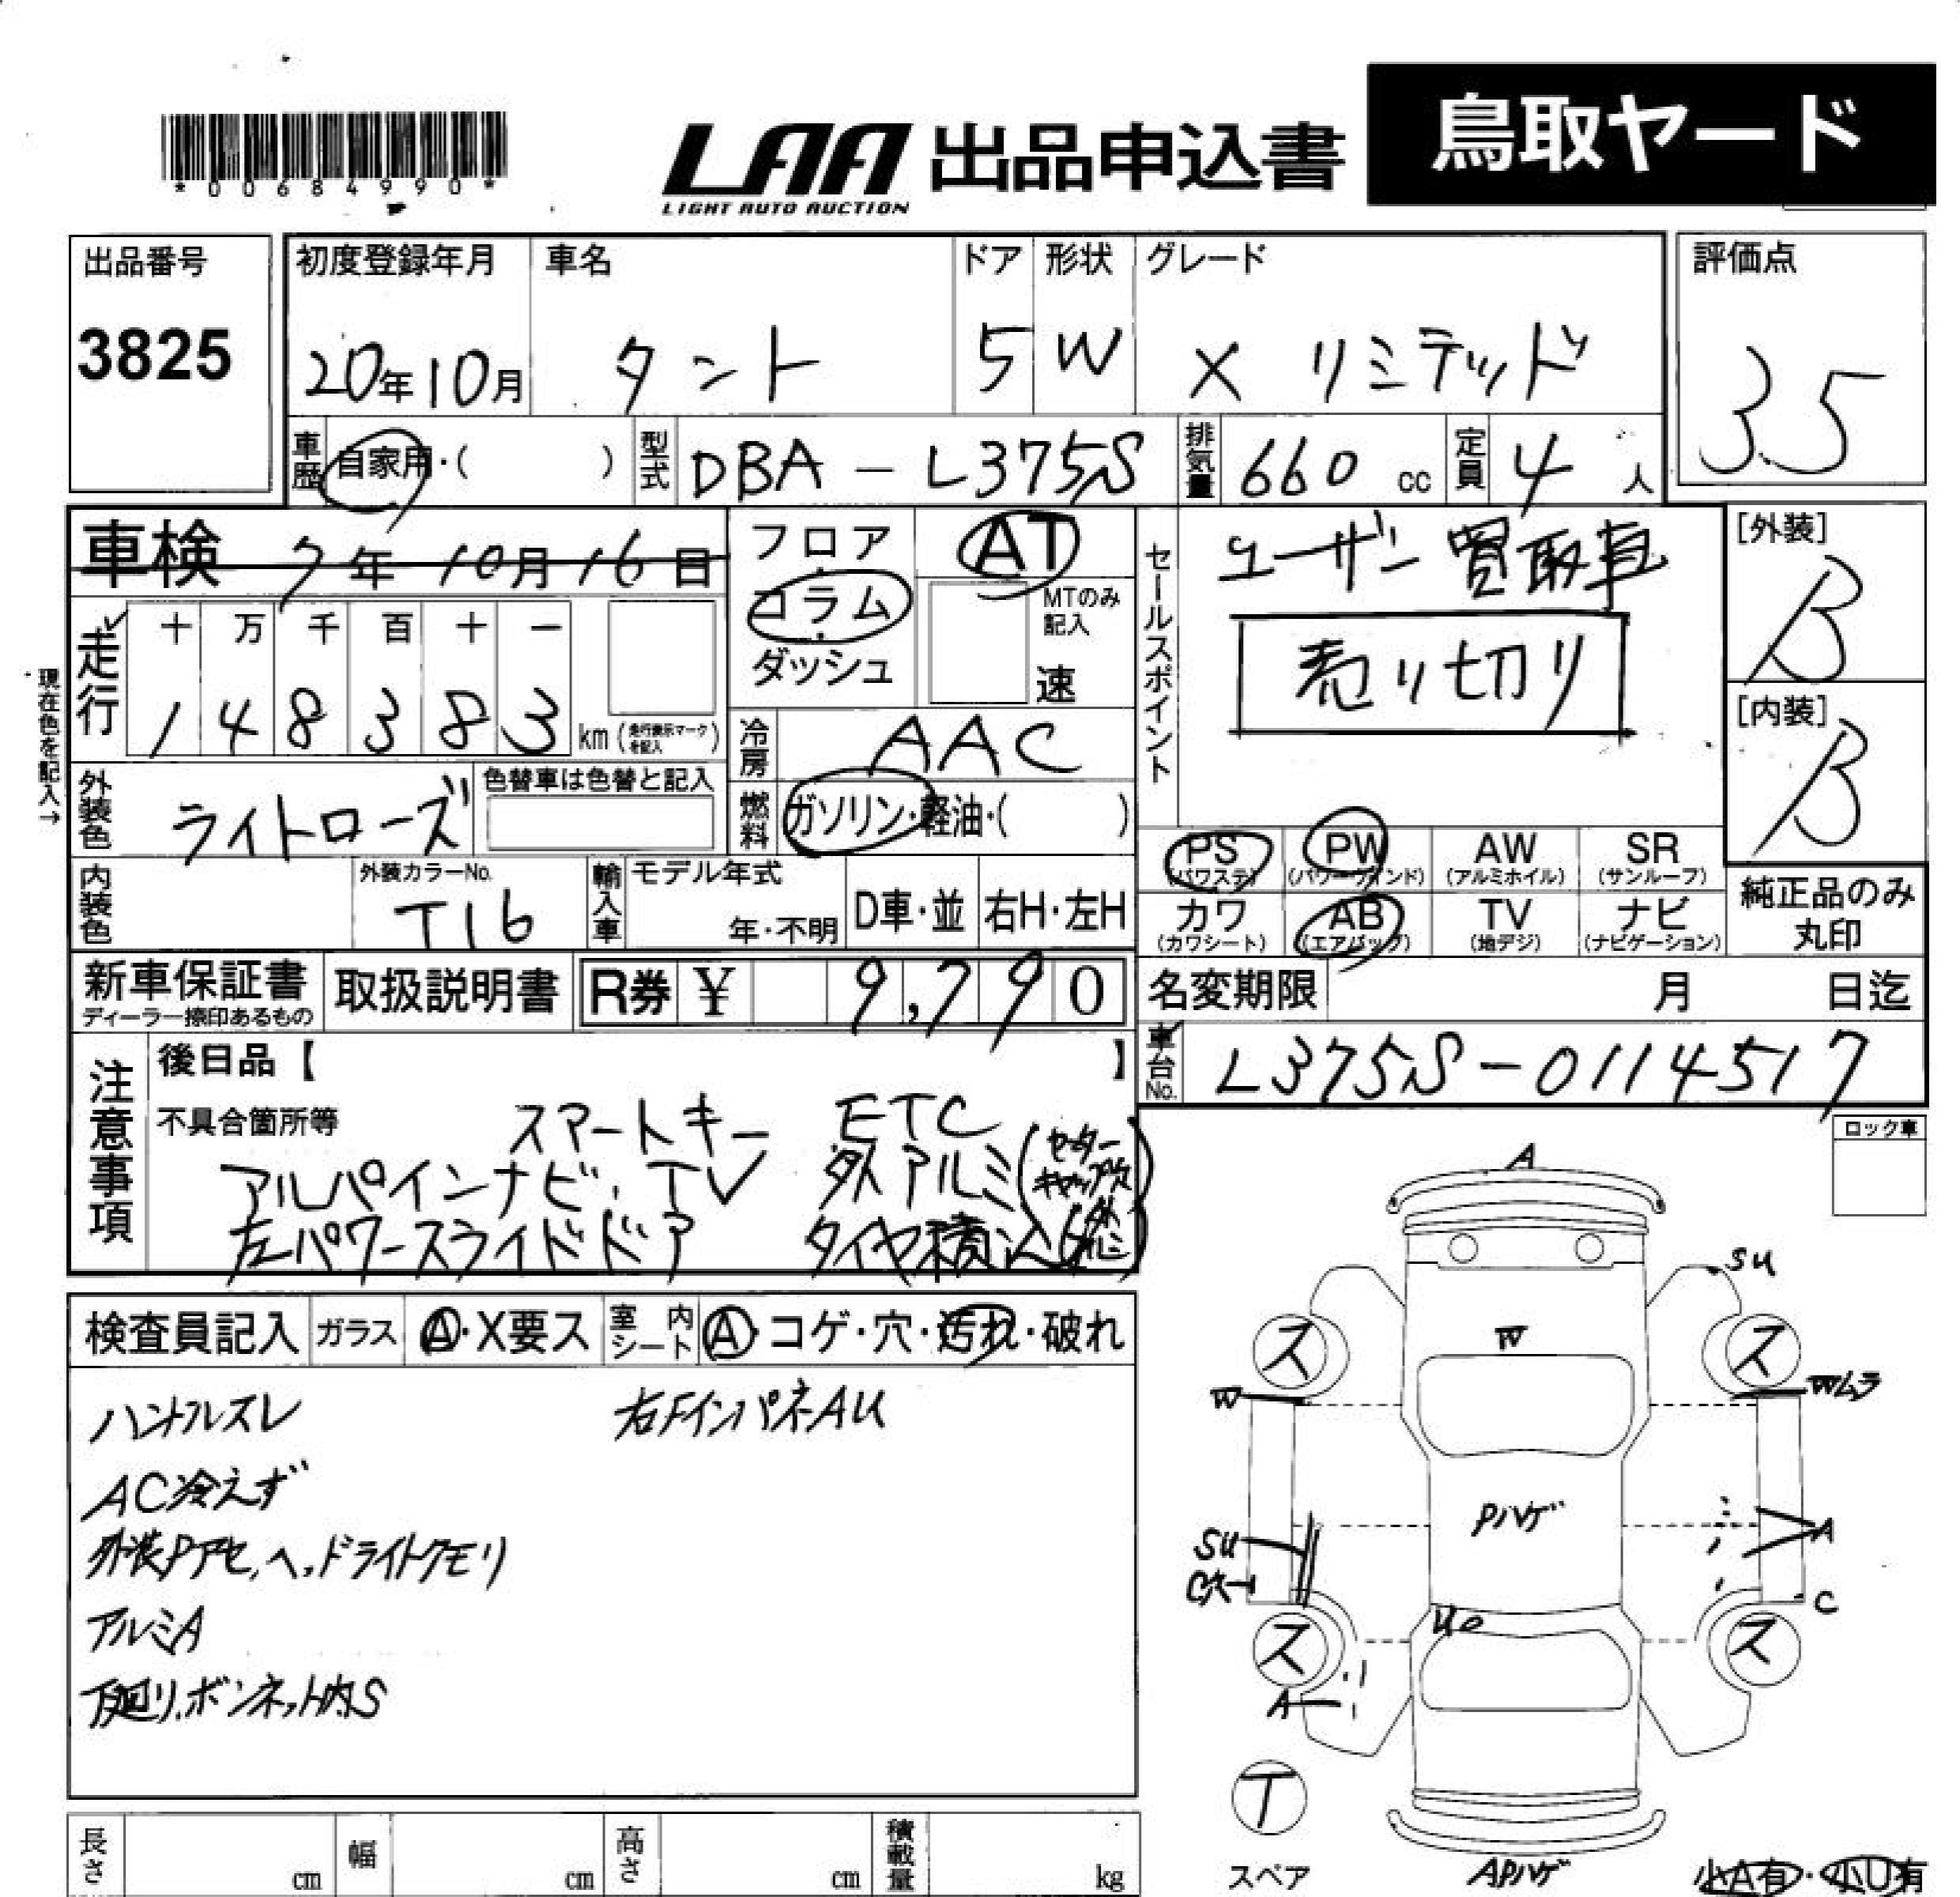 *00684990*
LAA 出品申込書 鳥取ヤード
LIGHT AUTO AUCTION
出品番号 初度登録年月 車名 ドア 形状 グレード 評価点
3825 20年10月 タント 5 W X リミテッド 3.5
車歴 自家用・( ) 型式 DBA-L375S 排気量 660 cc 定員 4 人
車検 7年10月16日 フロア AT セールスポイント ユーザー買取車 [外装]
コラム MTのみ記入 売り切り B
走行 十 万 千 百 十 一 ダッシュ 速 [内装]
1 4 8 3 8 3 km (走行表示マークを記入) 冷房 AAC B
現在色を記入→
外装色 ライトローズ 色替車は色替と記入 燃料 ガソリン・軽油・( )
PS (パワステ) PW (パワーウインド) AW (アルミホイル) SR (サンルーフ)
内装色 外装カラーNo. T16 輸入車 モデル年式 年・不明 D車・並 右H・左H
カワ (カワシート) AB (エアバッグ) TV (地デジ) ナビ (ナビゲーション) 純正品のみ丸印
新車保証書 取扱説明書 R券 ¥ 9,790 名変期限 月 日迄
ディーラー捺印あるもの
注意事項 後日品【 】 車台No. L375S-0114517
不具合箇所等 スマートキー ETC
アルパインナビ・TV 社外アルミ
左パワースライドドア タイヤ積込
ロック車
検査員記入 ガラス A・X要ス 室内シート A・コゲ・穴・汚れ・破れ
ハンドルスレ 右FインパネAU
AC冷えず
外装Pアセ、ヘッドライトクモリ
アルミA
下廻り、ボンネット内S
A
SU
W
ス ス
W Wムラ
Pハゲ
SU A
C穴 C
U0
ス ス
A
T
スペア APハゲ 小A有・小U有
長さ cm 幅 cm 高さ cm 積載量 kg